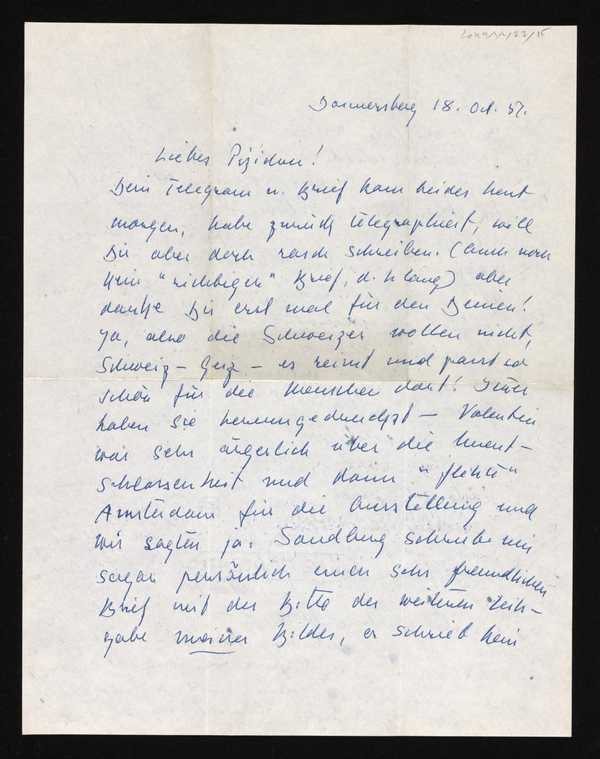 18. Okt. 57.
Liebes Pizidun!
Dein Telegram u. Brief kam beides heut
morgen, habe zurück telegraphiert, will
Dir aber doch rasch schreiben. (Auch noch
kein "richtigen" Brief, d. h lang) aber
danke Dir erst mal für den Deinen!
Ja, also die Schweizer wollen nicht,
Schweiz – Geiz – es reimt und passt so
schön für die Menschen dort!
haben sie herumgedruckst – Valentin
war sehr ärgerlich über die Unent-
schlossenheit und dann "flehte"
Amsterdam für die Ausstellung und
wir sagten ja. Sandberg schrieb mir
sogar persönlich einen sehr freundlichen
Brief mit der Bitte der weiteren Leih-
gabe meiner Bilder, er schrieb kein